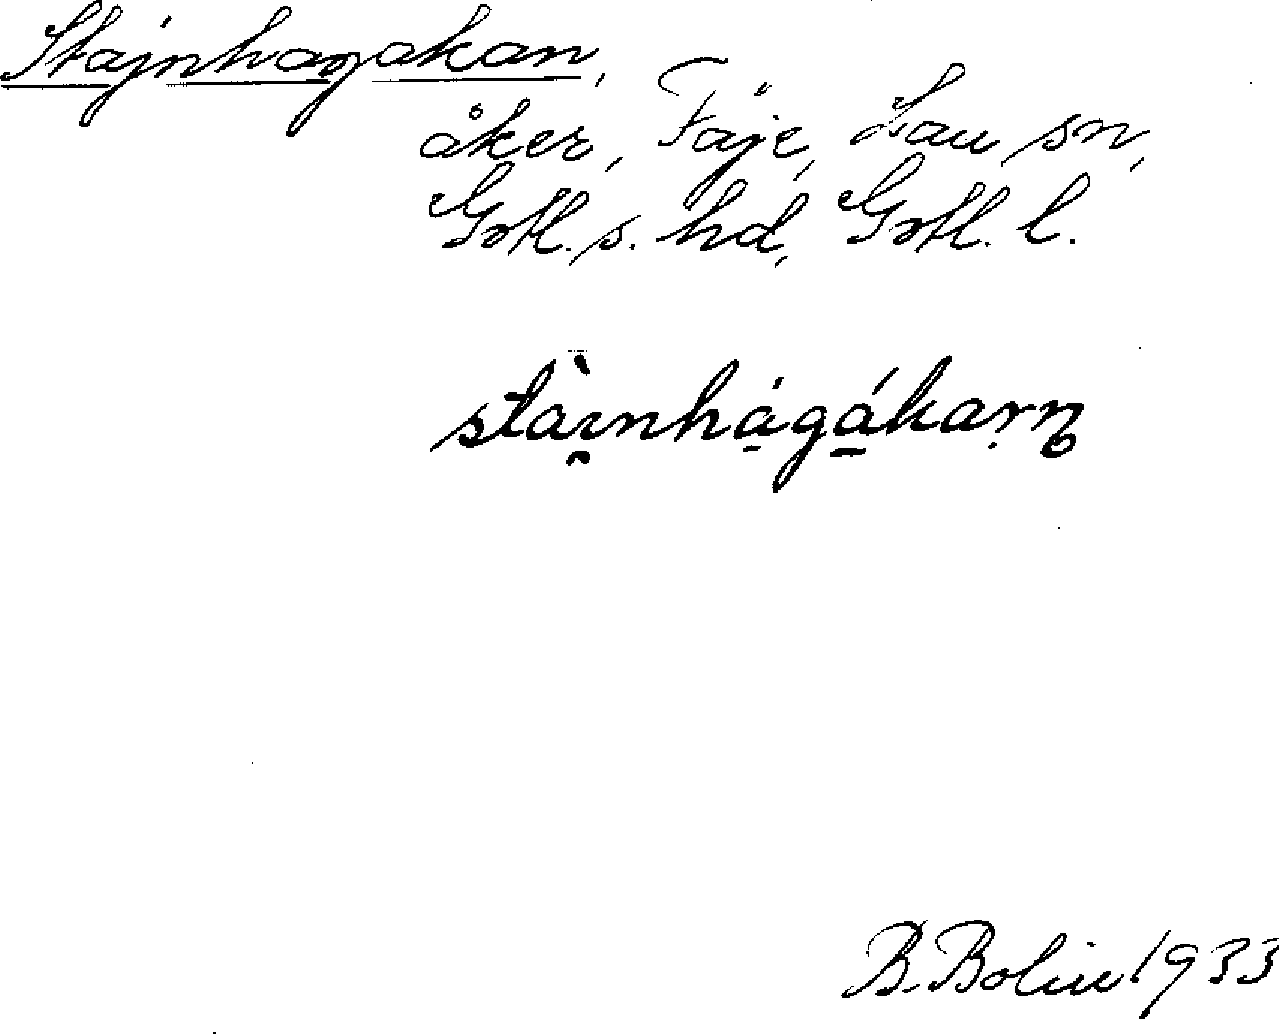 Stajnhagakan,
åker, Faje, Lau sn,
Gotl. s. hd, Gotl. l.
stàɪnhágákarn
B. Bolin 1933